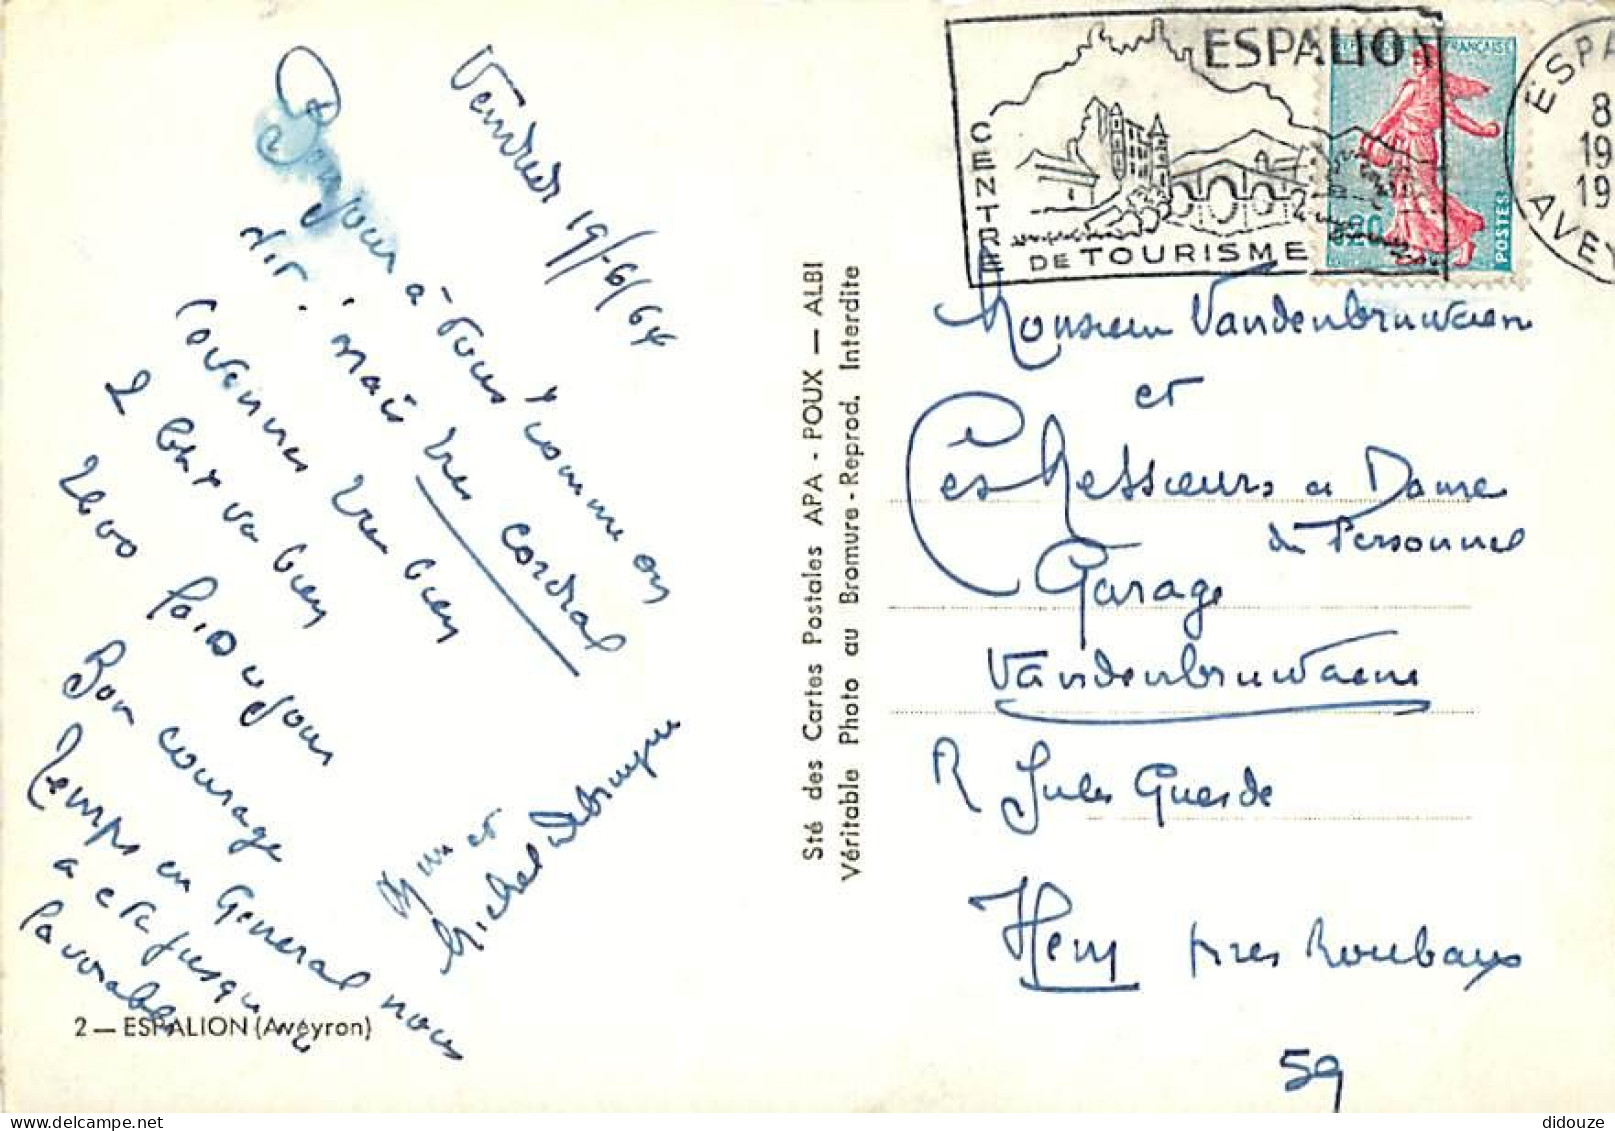 Vendredi 19/-6/64
Bonjour à tous comme on
dit : mais très cordial
vacances très bien
2 ch
va bien
Bon courage
temps en General nous
a été jusqu'
favorable
et
Michel Debruyne
2 — ESPALION (Aveyron)
Sté des Cartes Postales APA - POUX — ALBI
Véritable Photo au Bromure - Reprod. Interdite
ESPALION
CENTRE
DE TOURISME
REPUBLIQUE FRANÇAISE
0.20
POSTES
ESPA
8
19
19
AVEY
Monsieur Vandenbruwaene
et
Ces Messieurs et Dames
du Personnel
Garage
Vandenbruwaene
R Jules Guesde
Hem près Roubaix
59
didouze